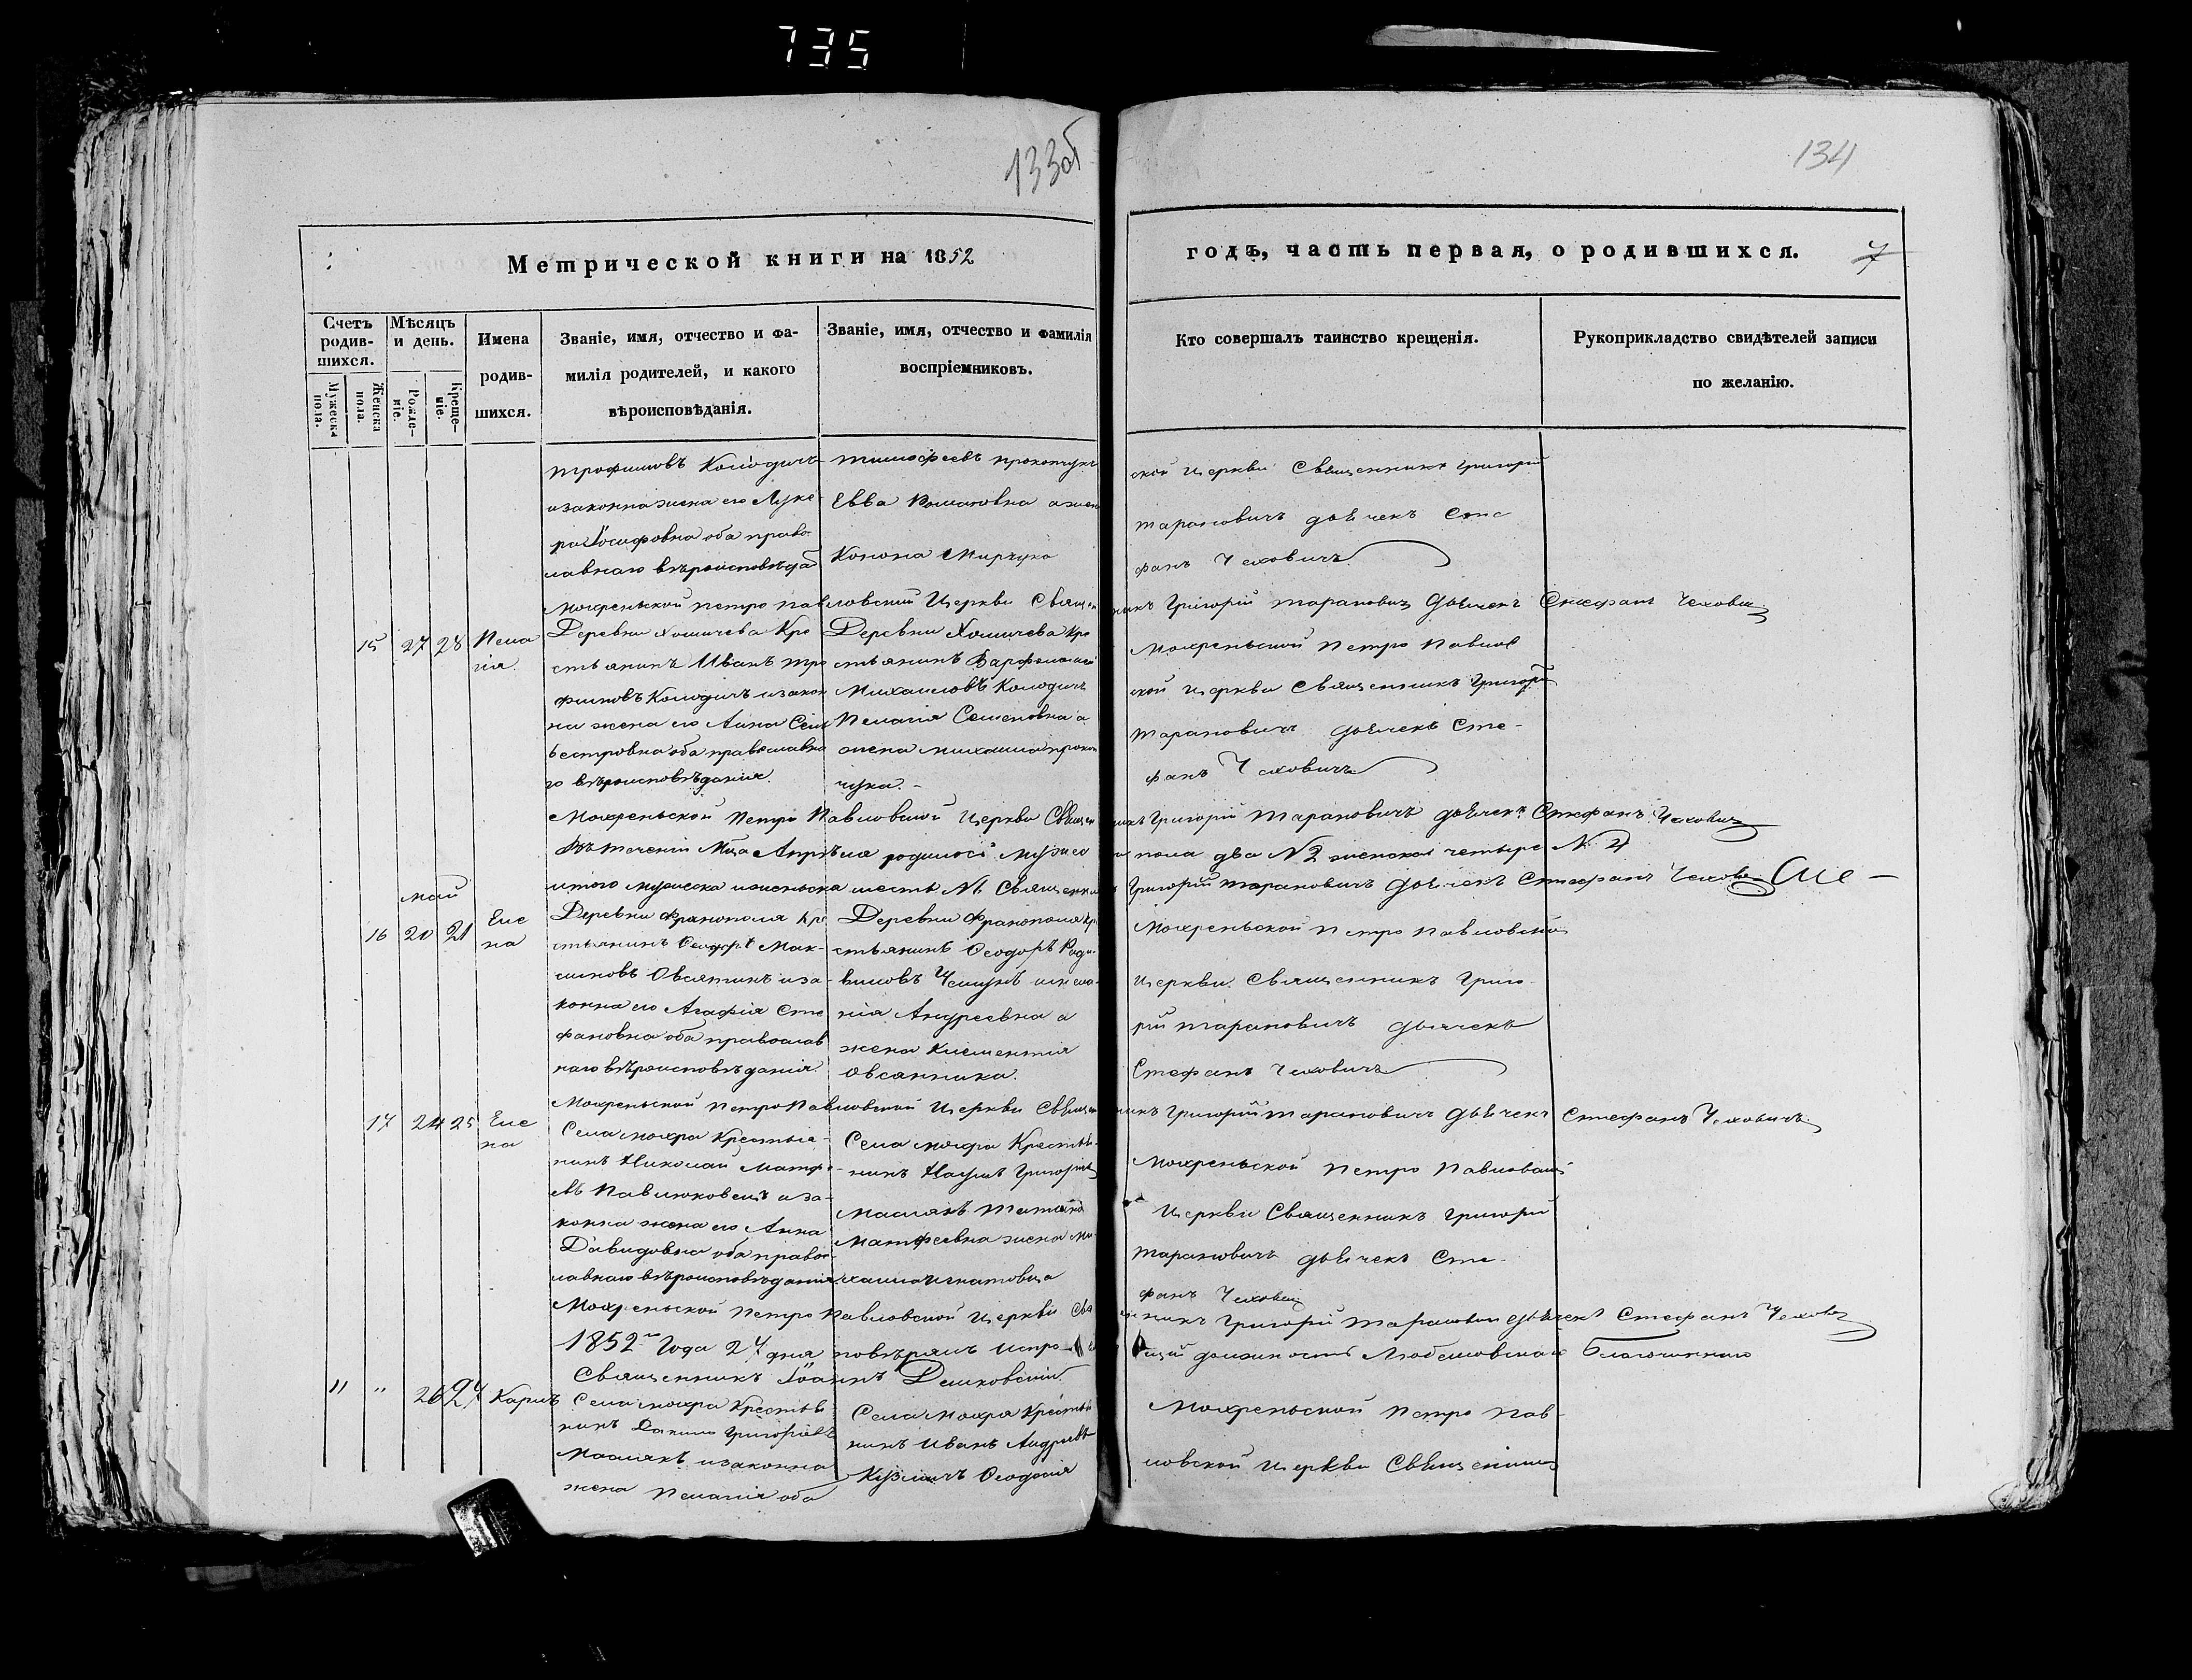 735
133об
134
Метрической книги на 1852
годъ, часть первая, о родившихся.
7
Счетъ родив-шихся.
Мужеска пола.
Женска пола.
Мѣсяцъ и день.
Рожде-ніе.
Креще-ніе.
Имена родив-шихся.
Званіе, имя, отчество и фа-
милія родителей, и какого
вѣроисповѣданія.
Званіе, имя, отчество и фамилія
воспріемниковъ.
Кто совершалъ таинство крещенія.
Рукоприкладство свидѣтелей записи
по желанію.
трофимовъ Колодичъ
изаконна жена его Луке-
ра Іосифовна оба право-
лавнаго вѣроисповѣда
тимофеевъ прокопчукъ
Евва Романовна а жена
Конона Мирчука
ской Церкви Священникъ Григорій
тарановичъ дьячекъ Сте
фанъ Чеховичъ
Мохреньской петро павловский Церкви Священникъ Григорій тарановичъ Дьячекъ Стефанъ Чеховичъ
15 27 28 Пела
гія
Деревни Хомичева Кре
стьянинъ Иванъ тро
фимовъ Колодичъ изакон
на жена его Анна Сели
вестровна оба православна
го вѣроисповѣданія.
Деревни Хомичева Кре
стьянинъ Варфоломей
Михаиловъ Колодичъ
Пелагія Семеновна а
жена михаила прокоп
чука.-
Мохреньской Петро Павлов
ской Церкви Священникъ Григорій
тарановичъ дьячекъ Сте-
фанъ Чеховичъ
Мохреньской Петро Павловской Церкви Священникъ Григорій Тарановичъ дьячекъ Стефанъ Чеховичъ
Въ теченіи Мца Апрѣля родилось мужеска пола два №2 женска четыре № 4
итого мужеска иженьска шесть №6 Священникъ Григорій тарановичъ дьячекъ Стефанъ Чеховичъ
май
16 20 21 Еле
на
Деревни Франополя Кре
стьянинъ Ѳеодоръ Мак-
симовъ Овсяникъ иза-
конна его Агафія Сте
фановна оба православ
наго вѣроисповѣданія.
Деревни Франополя Кре
стьянинъ Ѳеодоръ Роди-
вновъ
нія Андреевна а
жена Климентія
Овсянника.
Мохреньской Петро Павловской
Церкви Священникъ Григо-
рій тарановичъ дьячекъ
Стефанъ Чеховичъ
Мохреньской Петро Павловской Церкви Священникъ Григорій тарановичъ дьячекъ Стефанъ Чеховичъ
17 24 25 Еле
на
Села мохра Крестья-
нинъ Николай Матфе-
евъ Павлюковецъ иза-
конна жена его Анна
Давидовна оба право-
лавнаго вѣроисповѣданія
Села мохра Крестья-
нинъ Наумъ Григорьевъ
маслякъ Татьяна
Матфеевна жена Ми-
хаила игнатовца
Мохреньской Петро Павловской
Церкви Священникъ Григорій
тарановичъ дьячекъ Сте-
фанъ Чеховичъ
Мохреньской Петро Павловской Церкви Священникъ Григорій тарановичъ дьячекъ Стефанъ Чеховичъ
1852го Года 27 дня повѣрялъ Испро- должность Любешовскаго Благочиннаго
Священникъ Іоаннъ
11 " 26 27 Карпъ
Села мохра Крестья
нинъ Данило Григорьевъ
Маслякъ изаконна
жена Пелагія оба
Села Мохра Крестья
нинъ Иванъ Андреевъ
Кузмичъ Ѳеодосія
Мохреньской Петро Пав-
ловской Церкви Священникъ